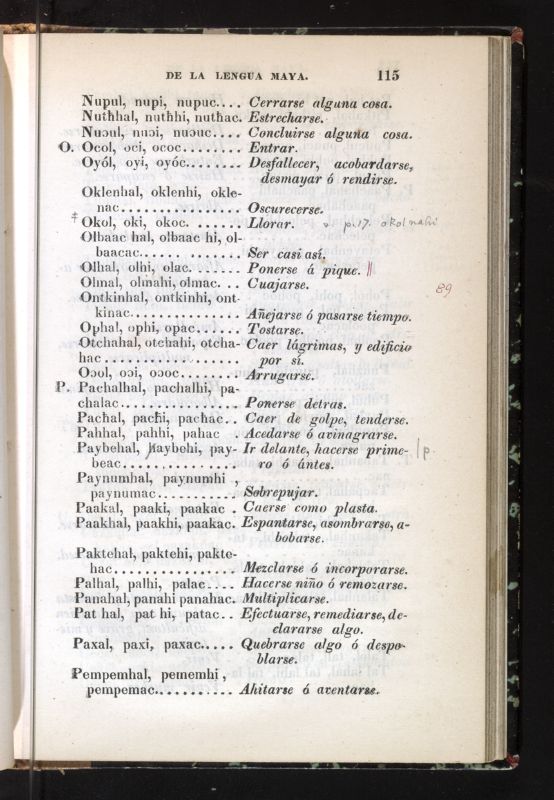 DE LA LENGUA MAYA. 115
Nupul, nupi, nupuc.... Cerrarse alguna cosa.
Nutħhal, nutħhi, nutħac. Estrecharse.
Nuɔul, nuɔi, nuɔuc.... Concluirse alguna cosa.
O. Ocol, oci, ococ......... Entrar.
Oyól, oyi, oyóc......... Desfallecer, acobardarse,
desmayar ó rendirse.
Oklenhal, oklenhi, okle-
nac................ Oscurecerse.
‡ Okol, oki, okoc. ....... Llorar. p. 17. okolnahi
Olbaac hal, olbaac hi, ol-
baacac...... ........ Ser casi así.
Olhal, olhi, olac. ...... Ponerse á pique. ||
Olmal, olmahi, olmac. ... Cuajarse. 89
Ontkinhal, ontkinhi, ont
kinac.............. Añejarse ó pasarse tiempo.
Ophal, ophi, opac...... Tostarse.
Otchahal, otchahi, otcha- Caer lágrimas, y edificio
hac ................. por sí.
Oɔol, oɔi, oɔoc........ Arrugarse.
P. Pachalhal, pachalhi, pa-
chalac............... Ponerse detras.
Pacħal, pacħi, pacħac.. Caer de golpe, tenderse.
Pahhal, pahhi, pahac .. Acedarse ó avinagrarse.
Paybehal, haybehi, pay- Ir delante, hacerse prime- | p.
beac............... ro ó ántes.
Paynumhal, paynumhi ,
paynumac.......... Sobrepujar.
Paakal, paaki, paakac . Caerse como plasta.
Paakhal, paakhi, paakac. Espantarse, asombrarse, a-
bobarse.
Paktehal, paktehi, pakte-
hac ............... Mezclarse ó incorporarse.
Palhal, palhi, palac.... Hacerse niño ó remozarse.
Panahal, panahi panahac. Multiplicarse.
Pat hal, pat hi, patac.. Efectuarse, remediarse, de-
clararse algo.
Paxal, paxi, paxac..... Quebrarse algo ó despo-
blarse.
Pempemhal, pememhi ,
pempemac........... Ahitarse ó aventarse.